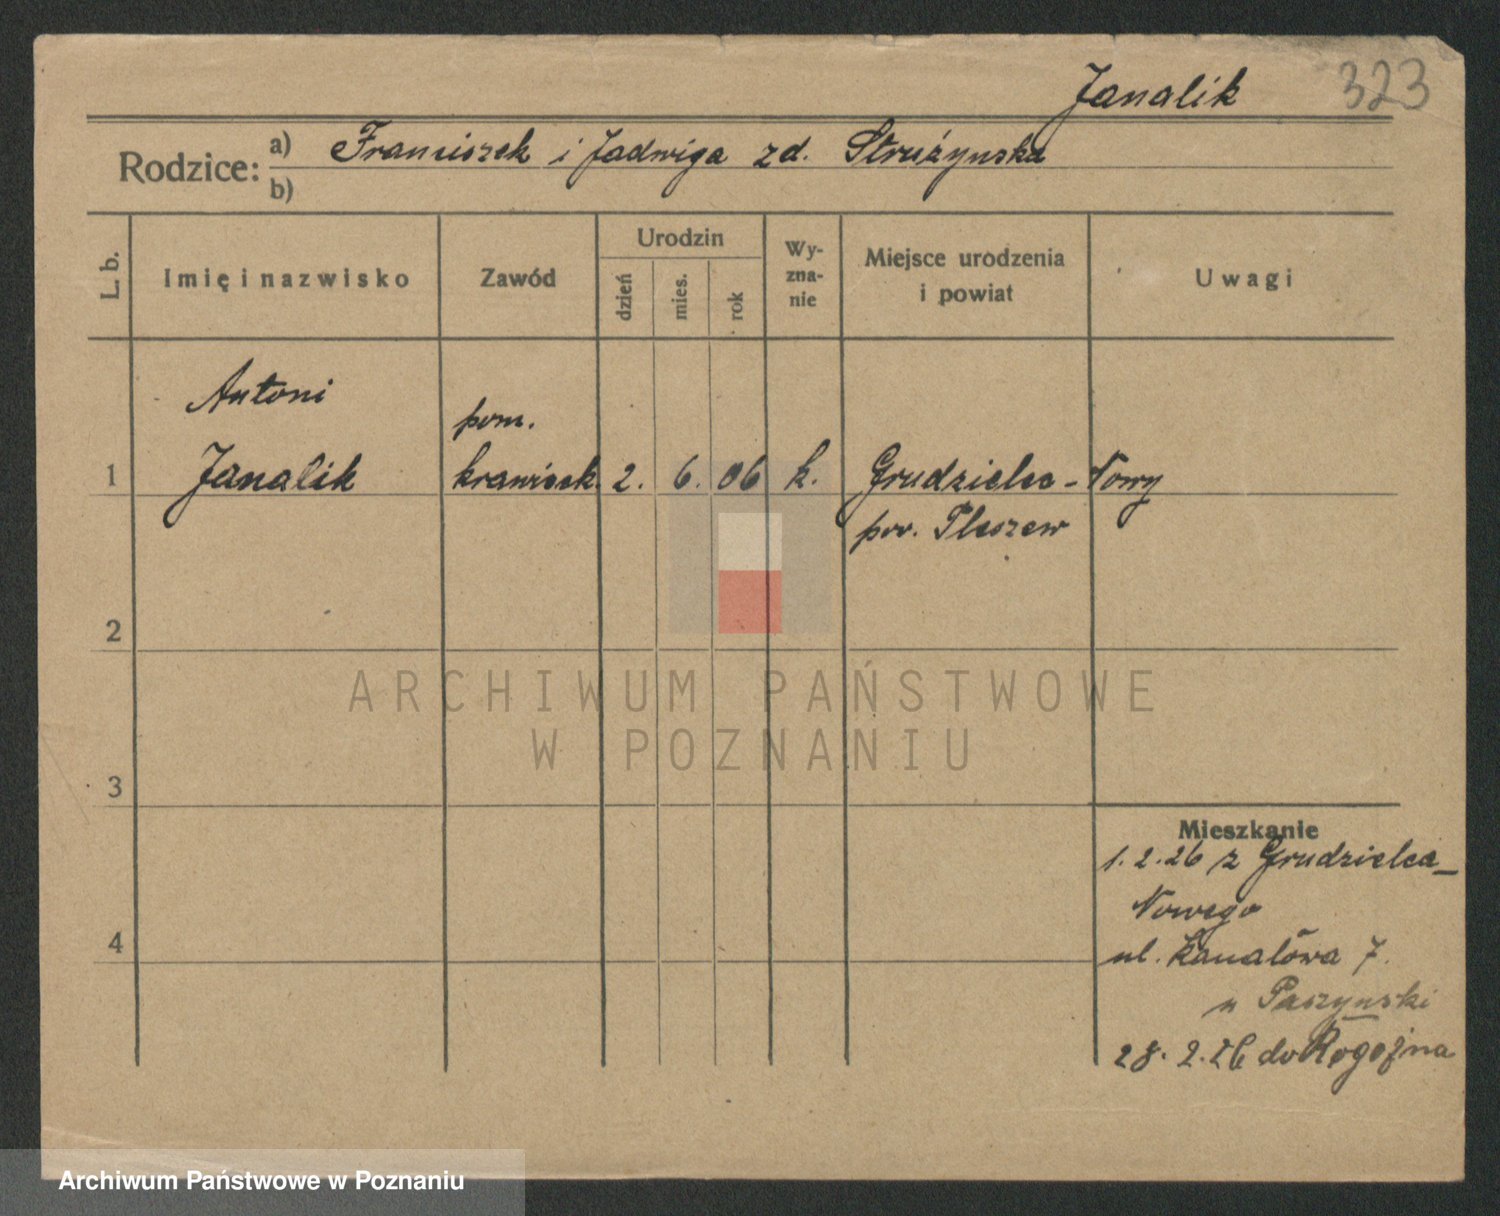 Janalik 323
Rodzice: a) Franciszek i Jadwiga zd. Strużynska
b)
L. b.
Imię i nazwisko
Zawód
Urodzin
dzień
mies.
rok
Wy-
zna-
nie
Miejsce urodzenia
i powiat
Uwagi
Antoni
pom.
1 Janalik krawieck. 2. 6. 06 k. Grudzielec - Nowy
pow. Pleszew
2
ARCHIWUM PAŃSTWOWE
W POZNANIU
3
Mieszkanie
1.2.26 z Grudzielca-
Nowego
4 ul. Kanałowa 7.
u Paszynski
28.2.26 do Rogoźna
Archiwum Państwowe w Poznaniu